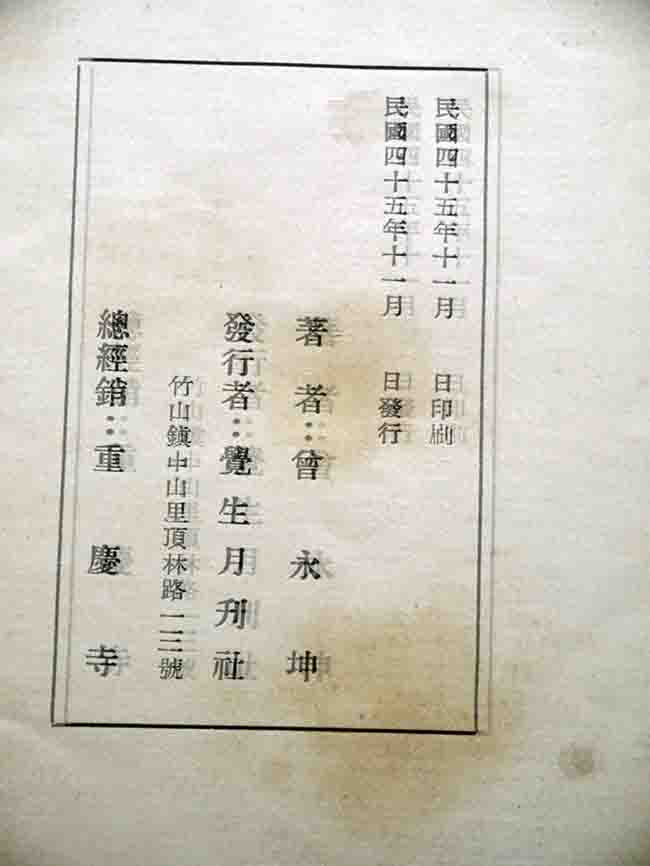 民國四十五年十一月 日印刷
民國四十五年十一月 日發行
著者：曾永坤
發行者：覺生月刊社
竹山鎮中山里頂林路一二一號
總經銷：重慶寺